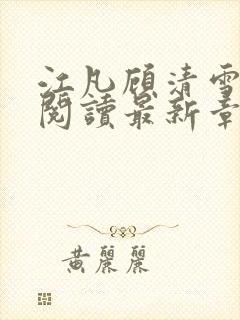 江凡顾清雪
閱讀最新章
黄麗麗